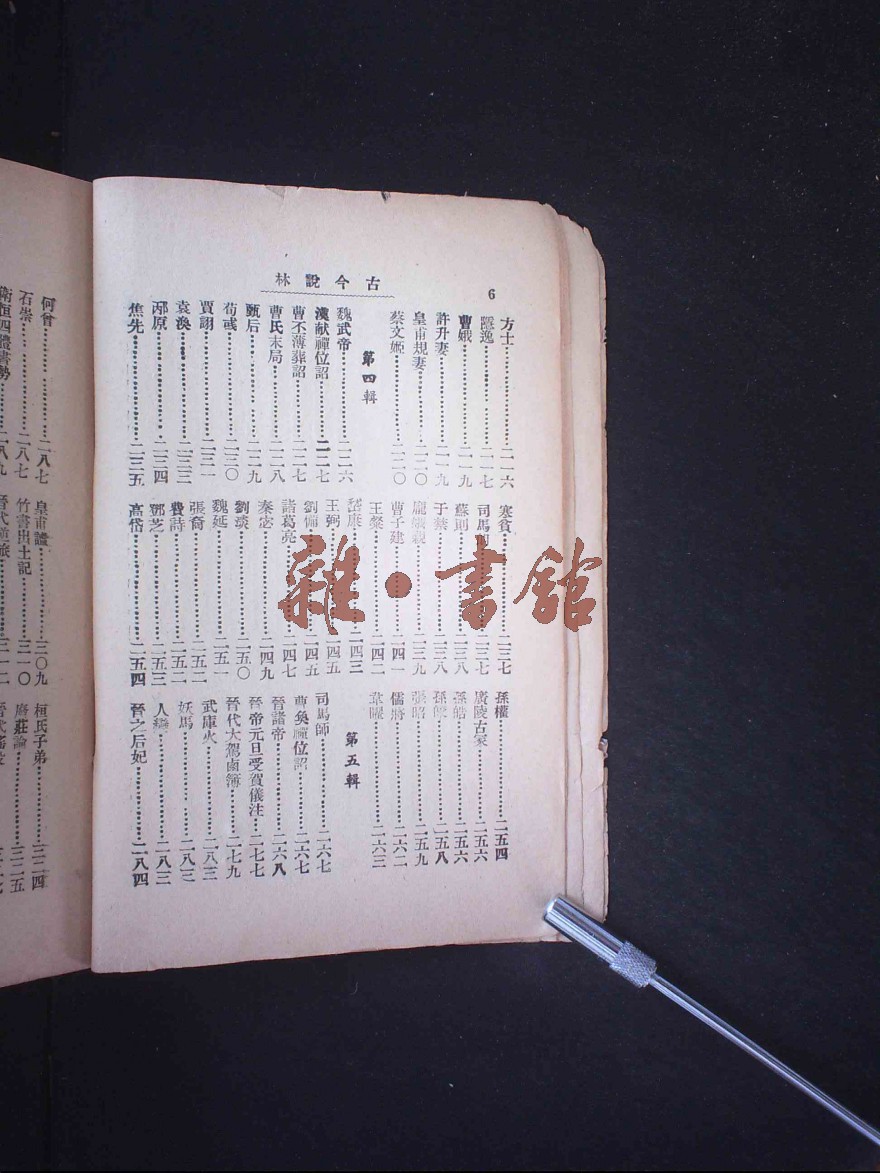 古今說林
6
方士……二一六
隱逸……二一七
曹娥……二一九
許升妻……二一九
皇甫規妻……二二〇
蔡文姬……二二〇
第四輯
魏武帝……二二六
漢献禪位詔……二二七
曹丕薄葬詔……二二七
曹氏末局……二二八
甄后……二二九
荀彧……二三〇
賈詡……二三一
袁渙……二三三
邴原……二三四
焦先……二三五
寒貧……二三七
司馬……二三七
蘇則……二三八
于禁……二三八
龐娥親……二三九
曹子建……二四一
王粲……二四二
嵇康……二四三
王弼……二四五
劉備……二四五
諸葛亮……二四七
秦宓……二四九
劉淡……二五〇
魏延……二五一
張裔……二五二
費詩……二五二
鄧芝……二五三
高岱……二五四
孫權……二五四
廣陵古冢……二五六
孫皓……二五六
孫……二五八
張昭……二五九
儒將……二六二
韋曜……二六三
第五輯
司馬師……二六七
曹奐禪位詔……二六七
晉諸帝……二六八
晉帝元旦受賀儀注……二七七
晉代大駕鹵簿……二七九
武庫火……二八三
妖馬……二八三
人……二八三
晉之后妃……二八四
何曾……二八七
石崇……二八七
衛恒四體書勢……二八九
皇甫謐……三〇九
竹書出土記……三一〇
晉代……三一二
桓氏子弟……三二四
廢莊論……三二五
雜·書館